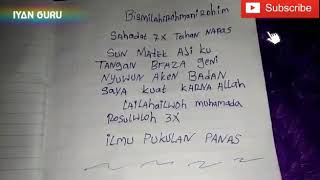 IYAN GURU
SUBSCRIBE
Bismilahirohmanirohim
Sahadat 7X Tahan NAPAS
SUN MATEK AJI KU
TANGAN BRAZA geni
NYUWUN AKEN BADAN
SAYA KUAT KARNA Allah
LAILAhailwoh muhamada
Rosulwloh 3X
ILMU PUKULAN PANAS